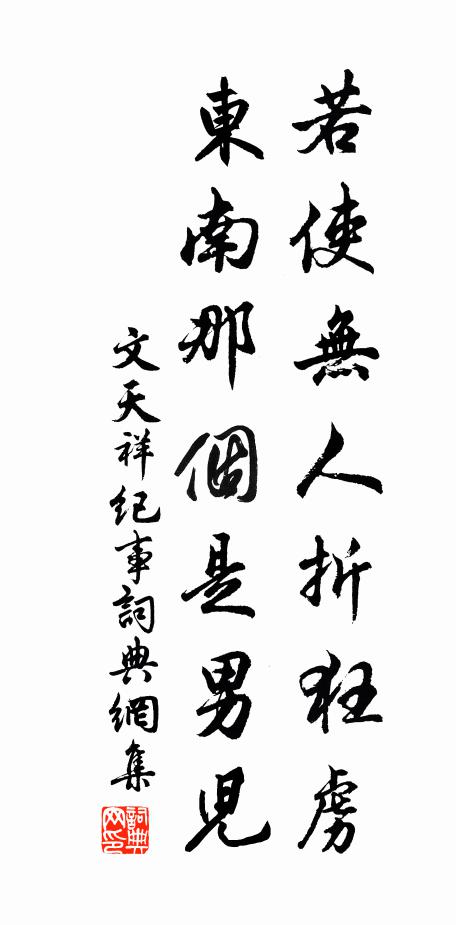 若使無人折狂虜
東南那個是男兒
文天祥紀事詞典網集
詞典網印